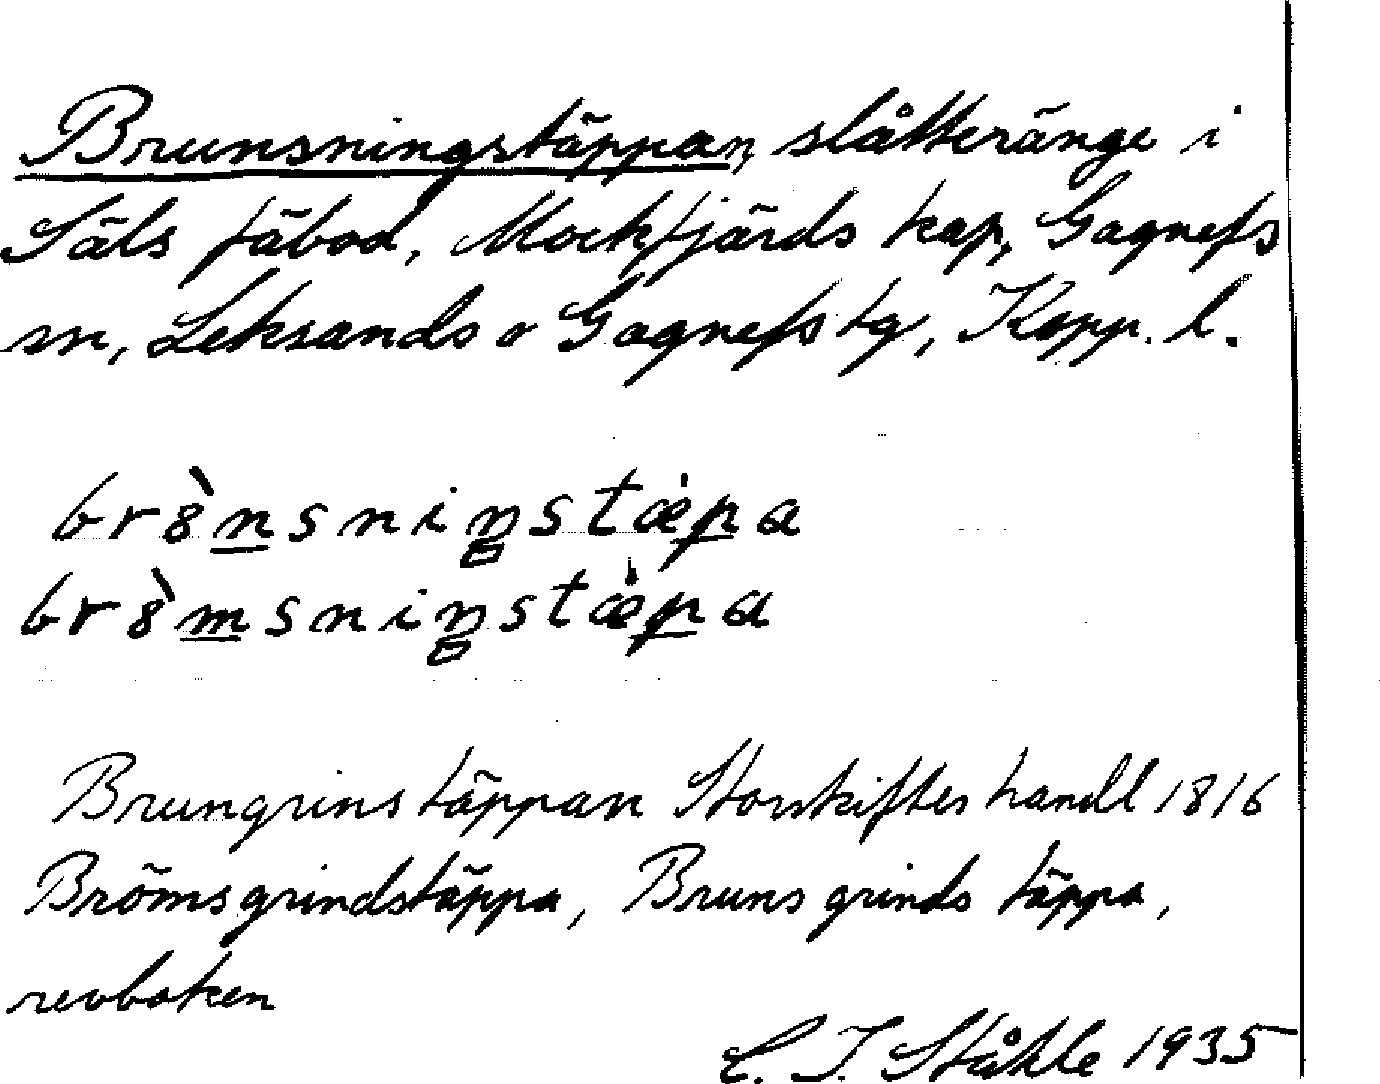 Brunsningstäppan, slåtteränge i
Säls fäbod, Mockfjärds kap, Gagnefs
sn, Leksands o Gagnefs tg, Kopp. l.
br8̀nsniŋstæ̇pa
br8̀msniŋstæ̇pa
Brungrinstäppan Storskifteshandl 1816
Brömsgrindstäppa, Brunsgrinds täppa,
revboken
C. I. Ståhle 1935